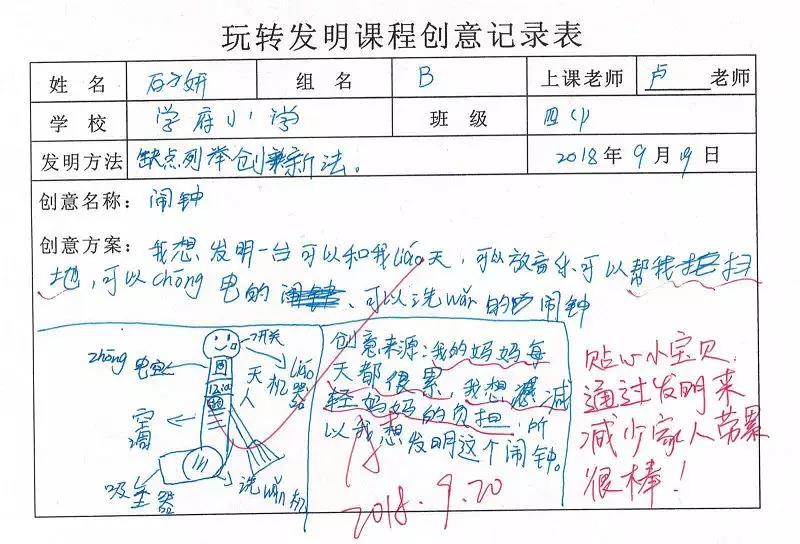 玩转发明课程创意记录表
姓 名 石子妍 组 名 B 上课老师 卢 老师
学 校 学府小学 班 级 四(1)
发明方法 缺点列举创新法。 2018年9月19日
创意名称：闹钟
创意方案：我想发明一台可以和我liáo天，可以放音乐可以帮我扫
地，可以chōng电的 可以洗wǎn的闹钟
开关
zhōng 电
天人
liáo器
机
空调
吸尘器
洗wǎn机
创意来源：我的妈妈每
天都很累，我想 减
轻妈妈的负担，所
以我想发明这个闹钟。
贴心小宝贝，
通过发明来
减少家人劳累
很棒！
2018.9.20